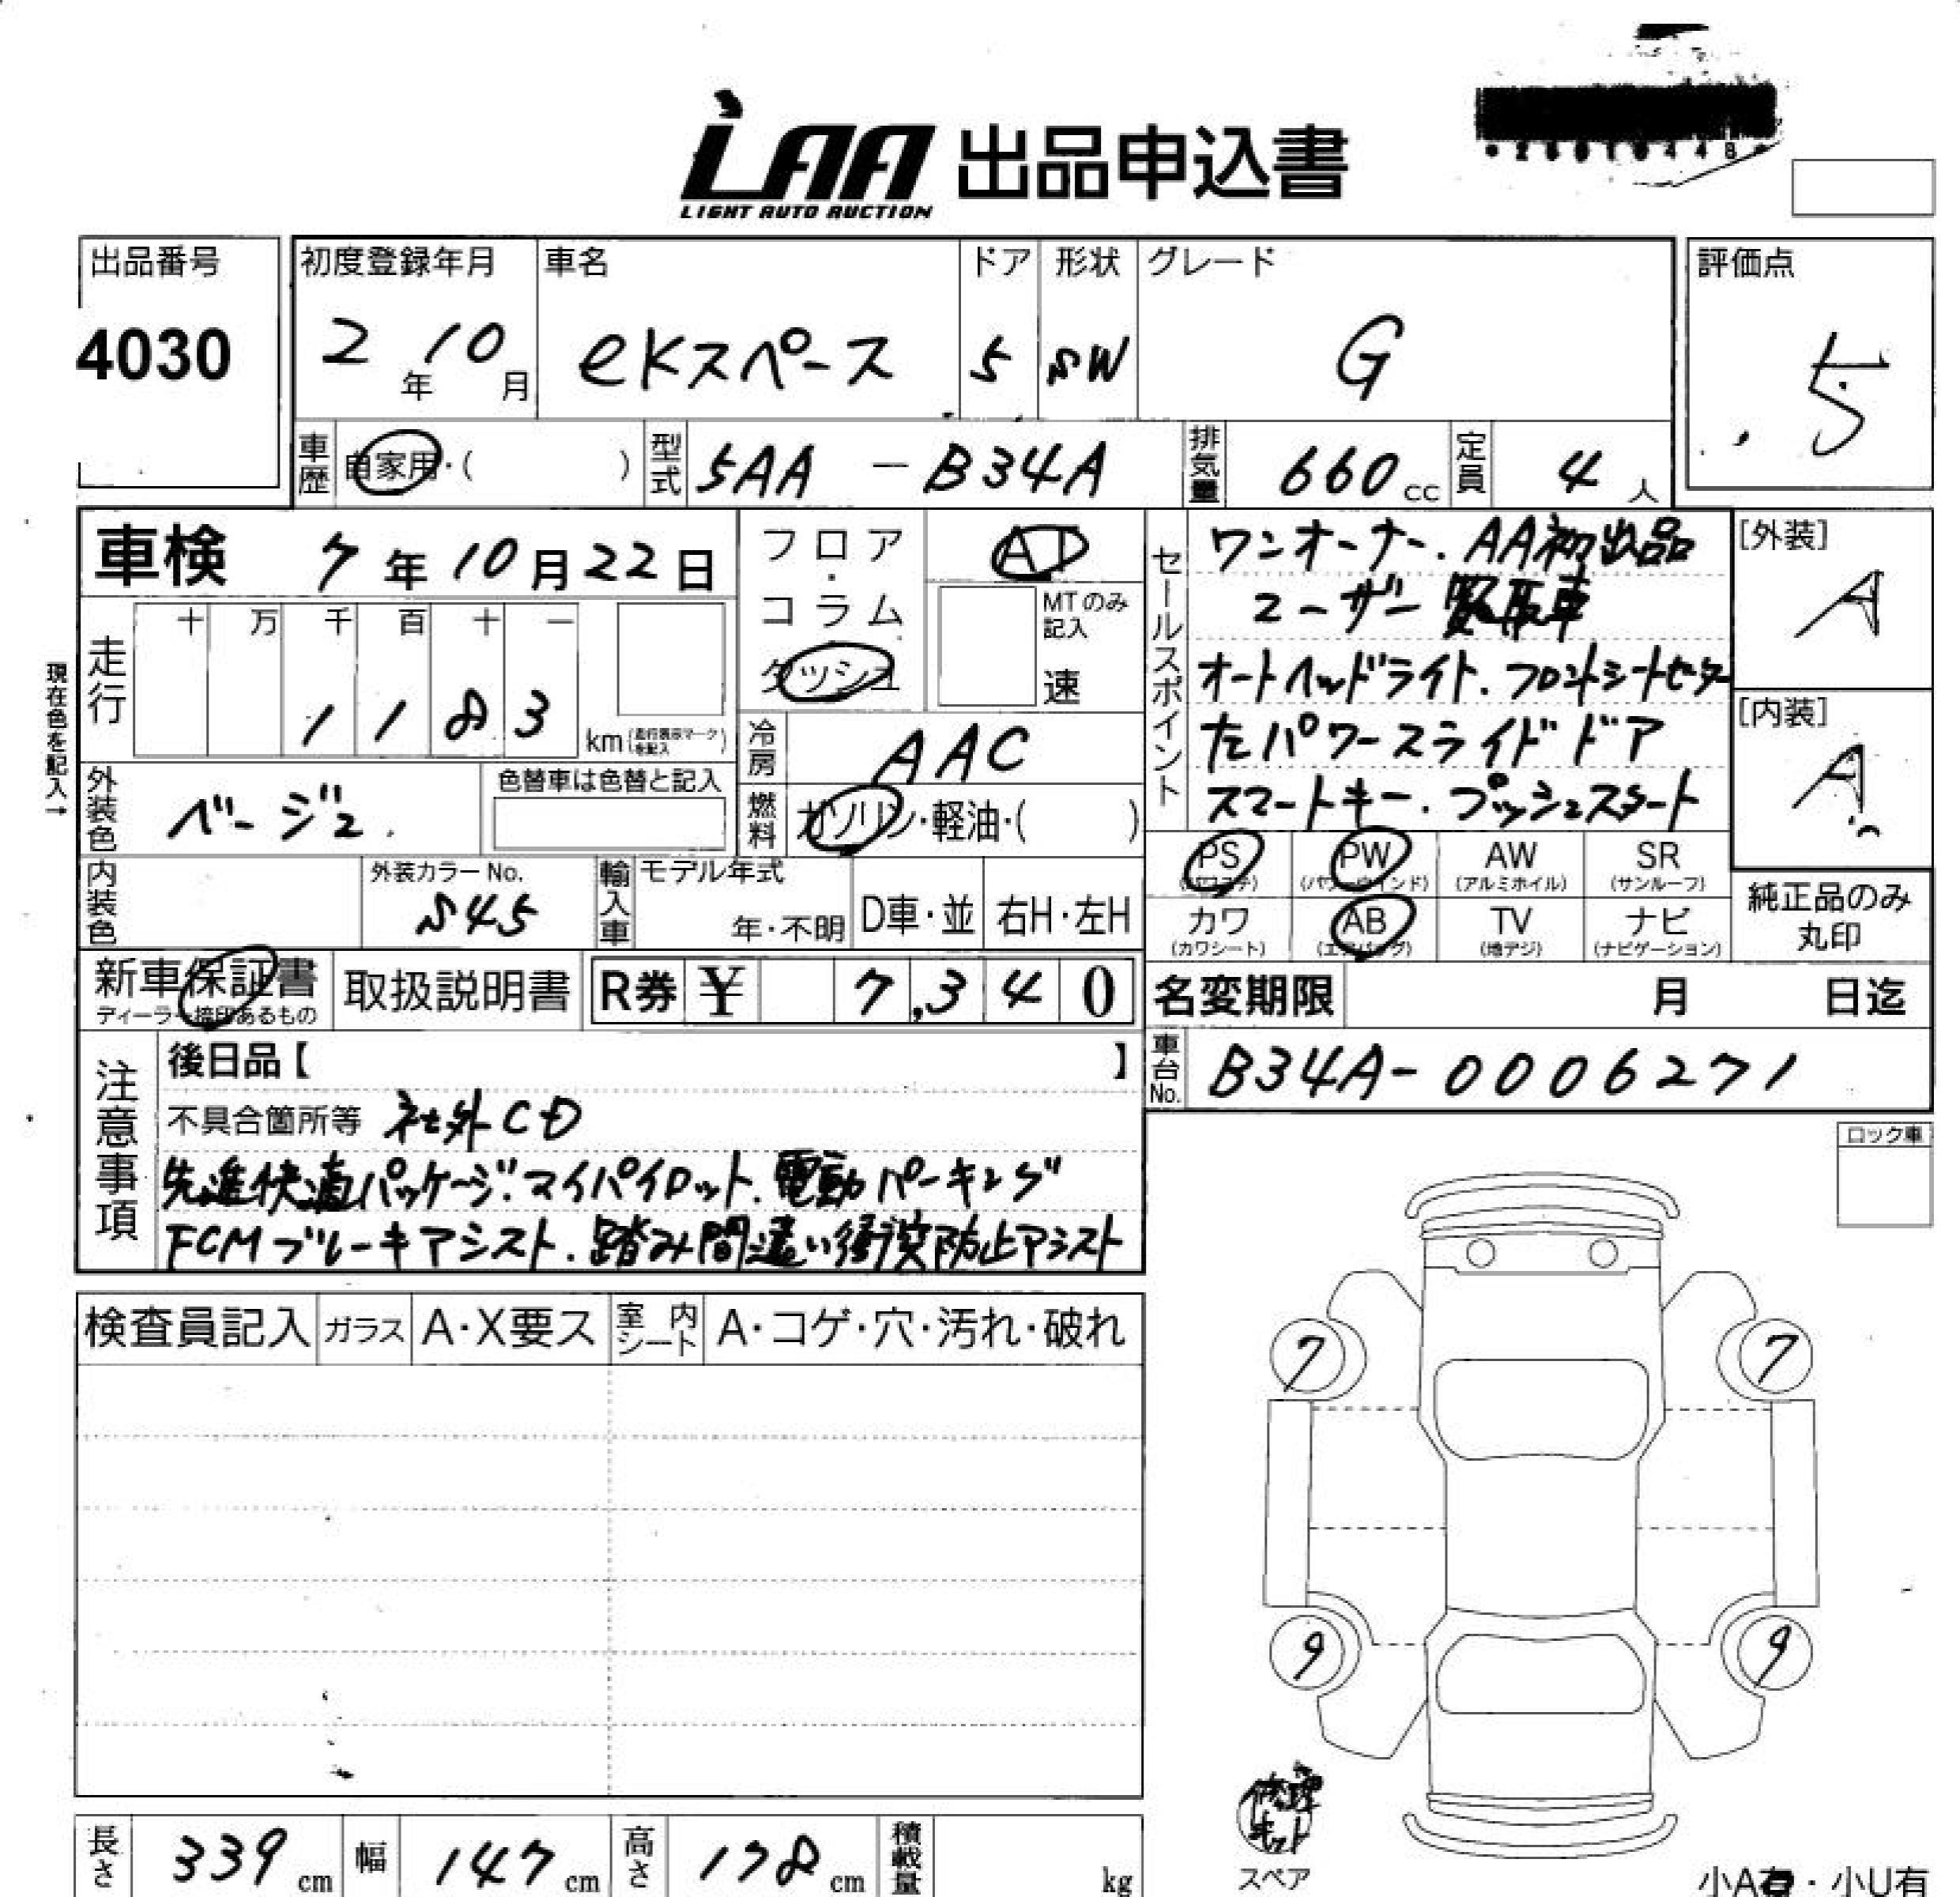 LAA 出品申込書
LIGHT AUTO AUCTION
出品番号 初度登録年月 車名 ドア 形状 グレード 評価点
4030 2年 10月 eKスペース 5 SW G 5
車歴 自家用・( ) 型式 5AA-B34A 排気量 660cc 定員 4人
車検 7年10月22日
フロア・コラム ダッシュ AT
MTのみ記入 速
走行 十 万 千 百 十 一
1 1 8 3 km(走行表示マークを記入)
現在色を記入→
冷房 AAC
外装色 ベージュ 色替車は色替と記入
燃料 ガソリン・軽油・( )
内装色 外装カラーNo. S45 輸入車 モデル年式 年・不明 D車・並 右H・左H
セールスポイント ワンオーナー.AA初出品
ユーザー買取車
オートヘッドライト.フロントシートヒーター
左パワースライドドア
スマートキー.プッシュスタート
[外装] A
[内装] A
PS (パワステ) PW (パワーウインド) AW (アルミホイル) SR (サンルーフ)
カワ (カワシート) AB (エアバッグ) TV (地デジ) ナビ (ナビゲーション)
純正品のみ丸印
新車保証書 ディーラー捺印あるもの 取扱説明書 R券 ¥ 7,340
名変期限 月 日迄
車台No. B34A-0006271
注意事項 後日品【 】
不具合箇所等 社外CD
先進快適パッケージ.マイパイロット.電動パーキング
FCMブレーキアシスト.踏み間違い衝突防止アシスト
ロック車
検査員記入 ガラス A・X要ス 室内シート A・コゲ・穴・汚れ・破れ
7 7
9 9
修理キット
スペア
長さ 339cm 幅 147cm 高さ 178cm 積載量 kg
小A有・小U有